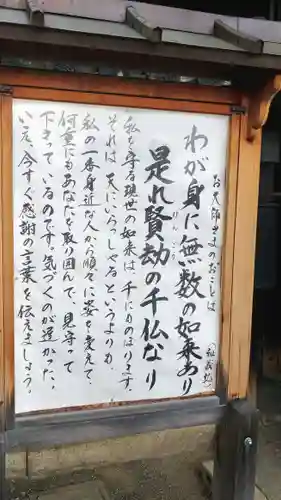 お大師さまのおことば
わが身に無数の如来あり
是れ賢劫の千仏なり
げんごう
私を守る現世の如来は、千にものぼります。
それは、天にいらっしゃるというよりも、
私の一番身近な人から順々に姿を変えて、
何重にもあなたを取り囲んで、見守って
下さっているのです。気づくのが遅かった、
いえ、今すぐ感謝の言葉を伝えましょう。